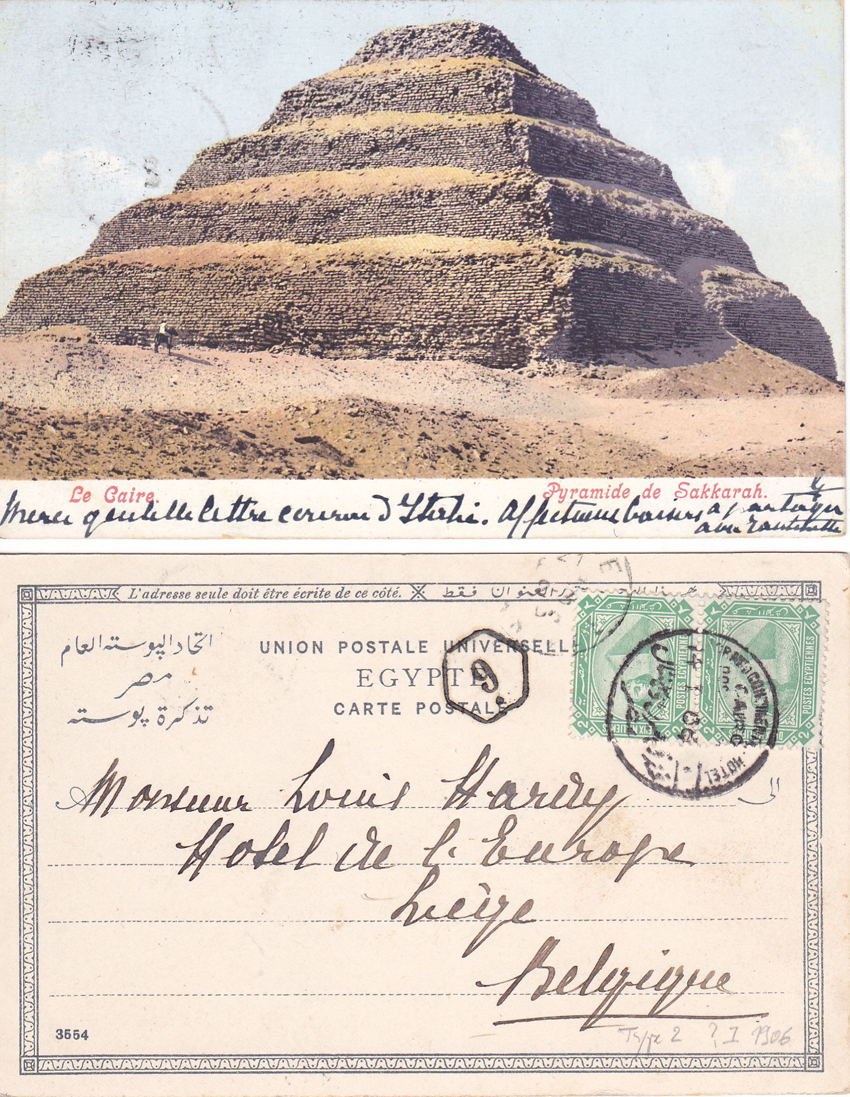 Le Caire.
Pyramide de Sakkarah.
Merci gentille lettre
Affectueux baisers à partager
avec
L'adresse seule doit être écrite de ce côté.
العنوان فقط
اتحاد البوسته العام
مصر
تذكرة بوسته
UNION POSTALE UNIVERSELLE
EGYPTE
CARTE POSTALE
9
POSTES EGYPTIENNES
POSTES EGYPTIENNES
CONTINENTAL HOTEL
CAIRO
Monsieur Louis Hardy
Hotel de l'Europe
Liège
Belgique
3554
Type 2 ? I 1906